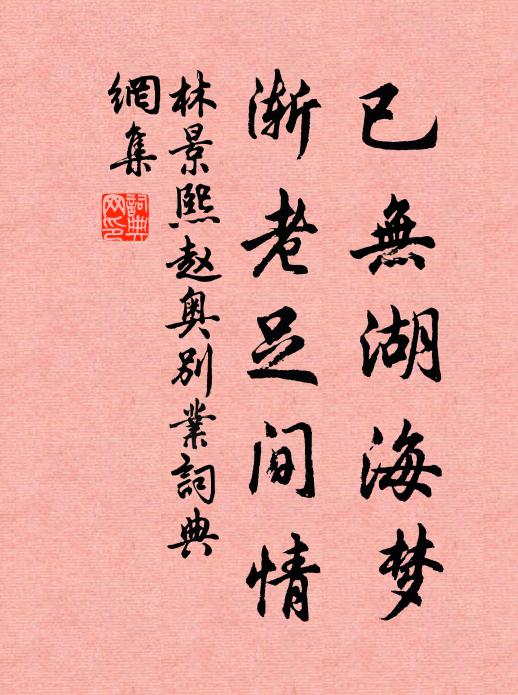 已無湖海梦
渐老足间情
林景熙赵奥別業詞典
網集
詞典
网印